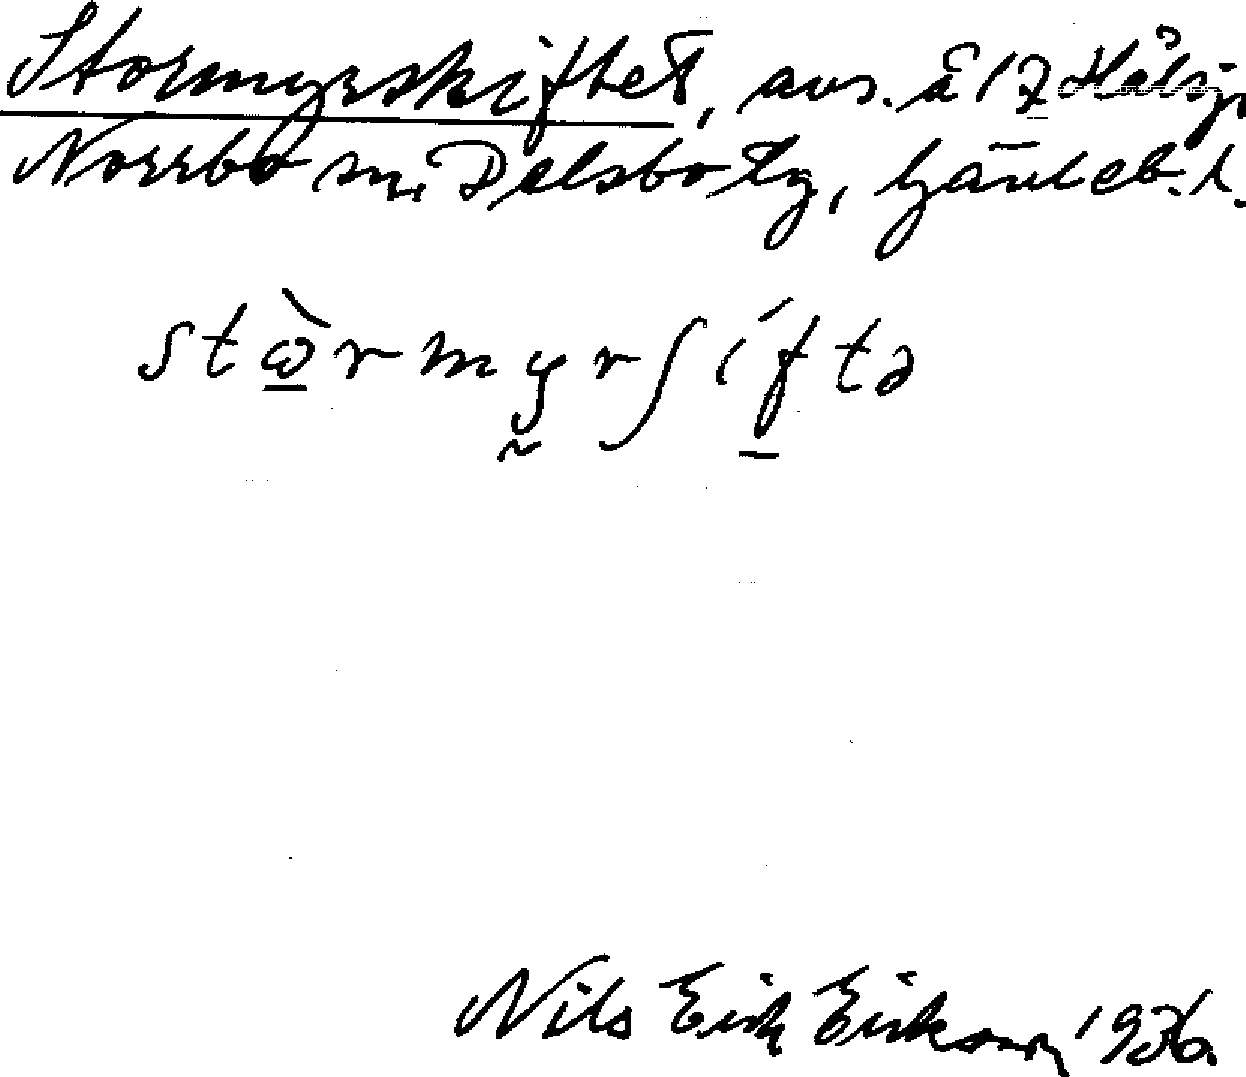 Stormyrskiftet, avs. å 17 Hålsj.
Norrbo sn, Delsbo tg, Gävleb. l.
stὼ̲rmy̰rʃíf̲tə
Nils Erik Erikson 1936.